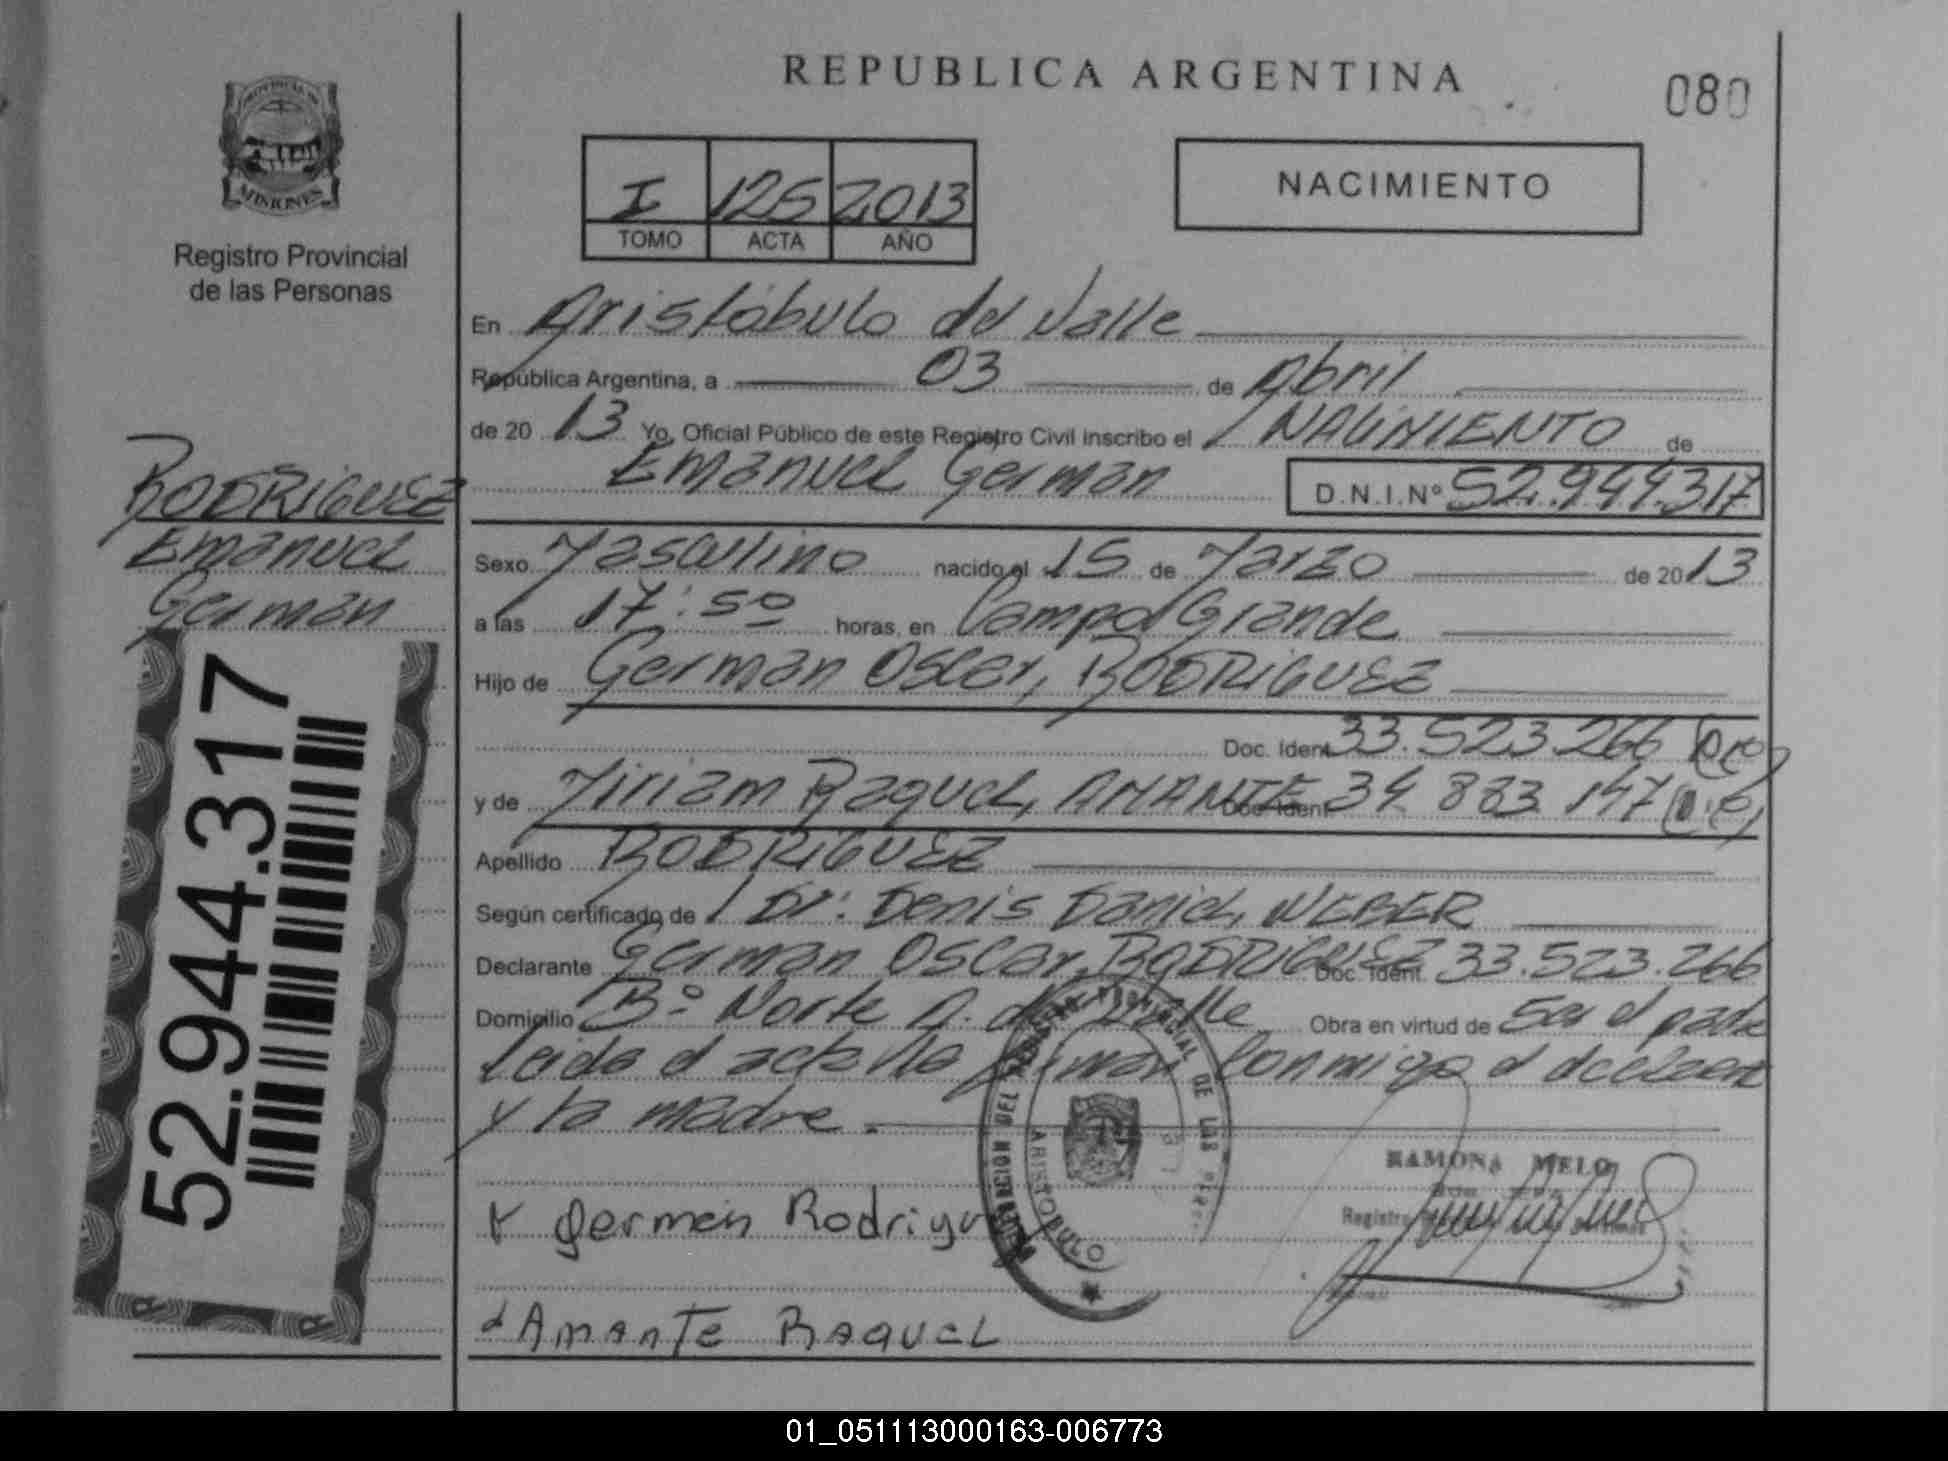 REPUBLICA ARGENTINA
080
PROVINCIA DE
MISIONES
Registro Provincial
de las Personas
I 125 2013
TOMO ACTA AÑO
NACIMIENTO
En Aristóbulo del Valle
República Argentina, a 03 de Abril
de 20 13 Yo, Oficial Público de este Registro Civil inscribo el NACIMIENTO de
Emanuel German D.N.I.Nº 52.944.317
RODRIGUEZ
Emanuel
German
Sexo Masculino nacido el 15 de Marzo de 2013
a las 17:50 horas, en Campo Grande
Hijo de German Oscar, RODRIGUEZ
Doc. Ident. 33.523.266
y de Miriam Raquel, AMANTE Doc. Ident. 34 883 147
Apellido RODRIGUEZ
Según certificado de Dr: Denis Daniel, WEBER
Declarante German Oscar, RODRIGUEZ Doc. Ident. 33.523.266
Domicilio Bº Norte A. del Valle Obra en virtud de Ser el padre
Leida el acta la firman Conmigo el declarante
y la madre.
52.944.317
DELEGACION DEL REGISTRO PROVINCIAL DE LAS
ARISTOBULO
RAMONA MELO
Registro
German Rodrigu
Amante Raquel
01_051113000163-006773